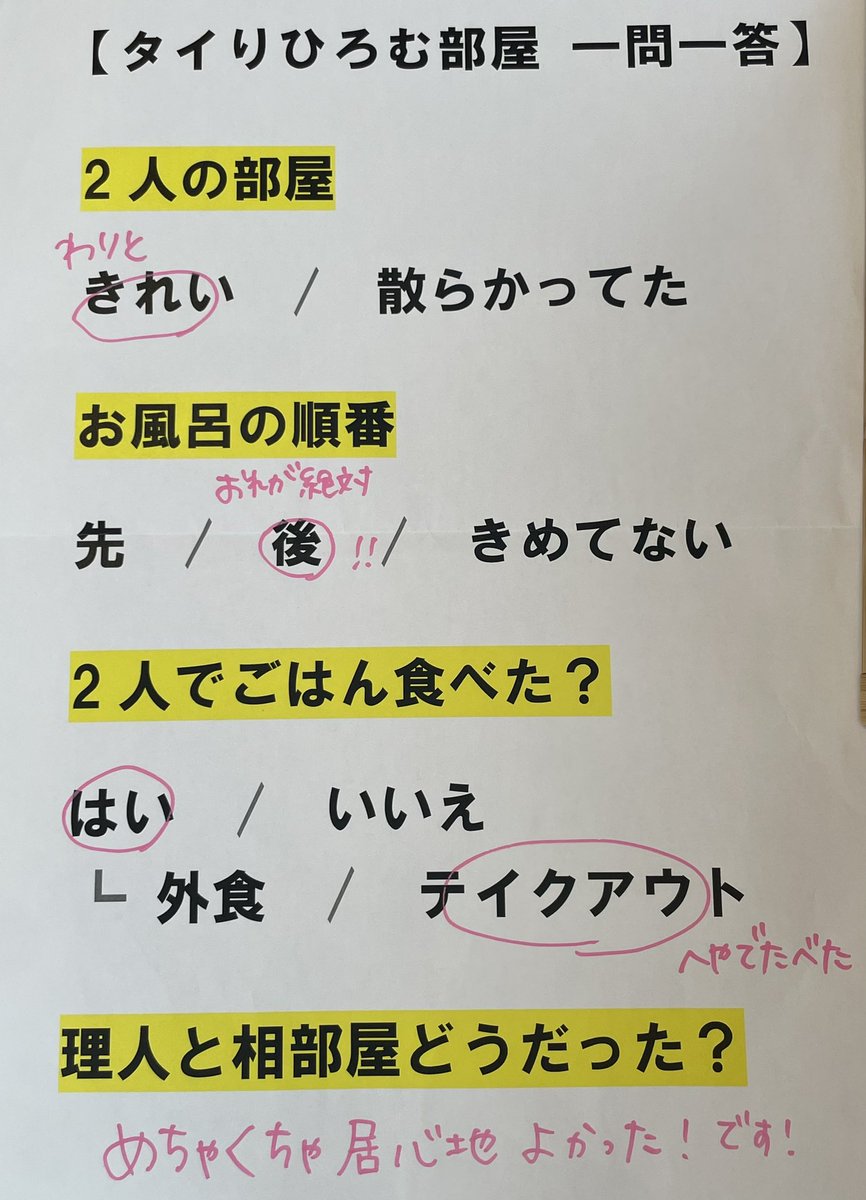 【タイりひろむ部屋 一問一答】
2人の部屋
わりと
きれい / 散らかってた
お風呂の順番
おれが絶対
先 / 後!! / きめてない
2人でごはん食べた？
はい / いいえ
└ 外食 / テイクアウト
へやでたべた
理人と相部屋どうだった？
めちゃくちゃ居心地よかった！です！